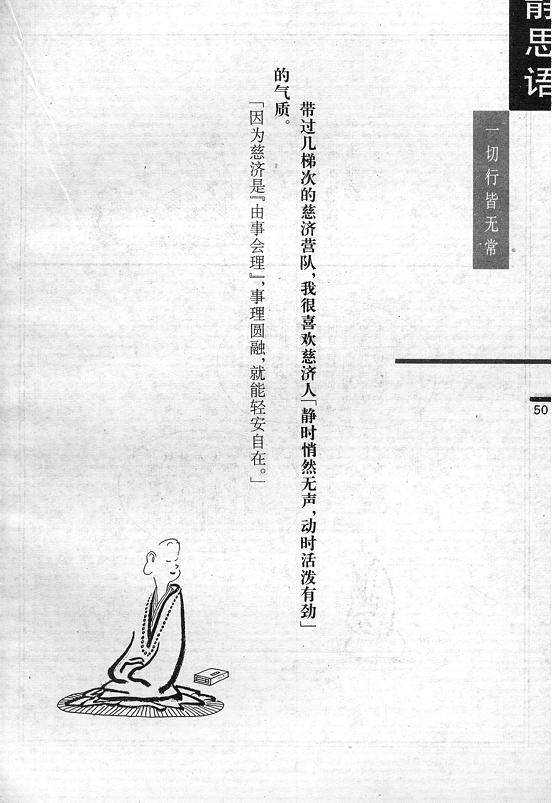 静思语
一切行皆无常
50
带过几梯次的慈济营队，我很喜欢慈济人「静时悄然无声，动时活泼有劲」
的气质。
「因为慈济是『由事会理』，事理圆融，就能轻安自在。」